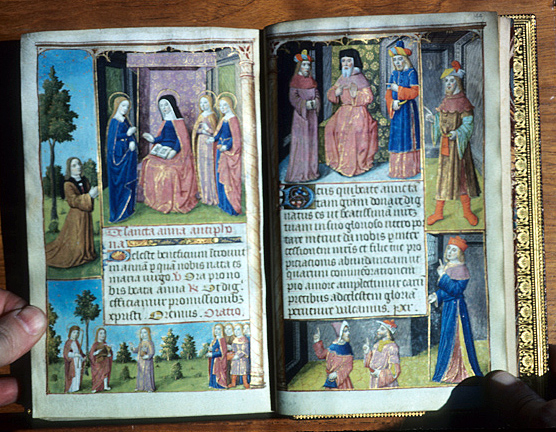 De sancta anna antipho
na
Celeste beneficium introiuit
in anna p quam nobis nata est
maria virgo. V Ora pro no
bis beata anna R Ut dig
efficiamur promissionib
xpristi. Oremus. Oratio.
Deus qui beate anne
tam donare dig
natus es ut beatissima
tuam in suo glorioso utero po
tare meruit da nobis p inter
cessionem matris et filie tue pro
piciationis abundantiam ut
quarum commemorationem
pio amore amplectimur
precibus ad celestem gloria
pervenire valeamus. per